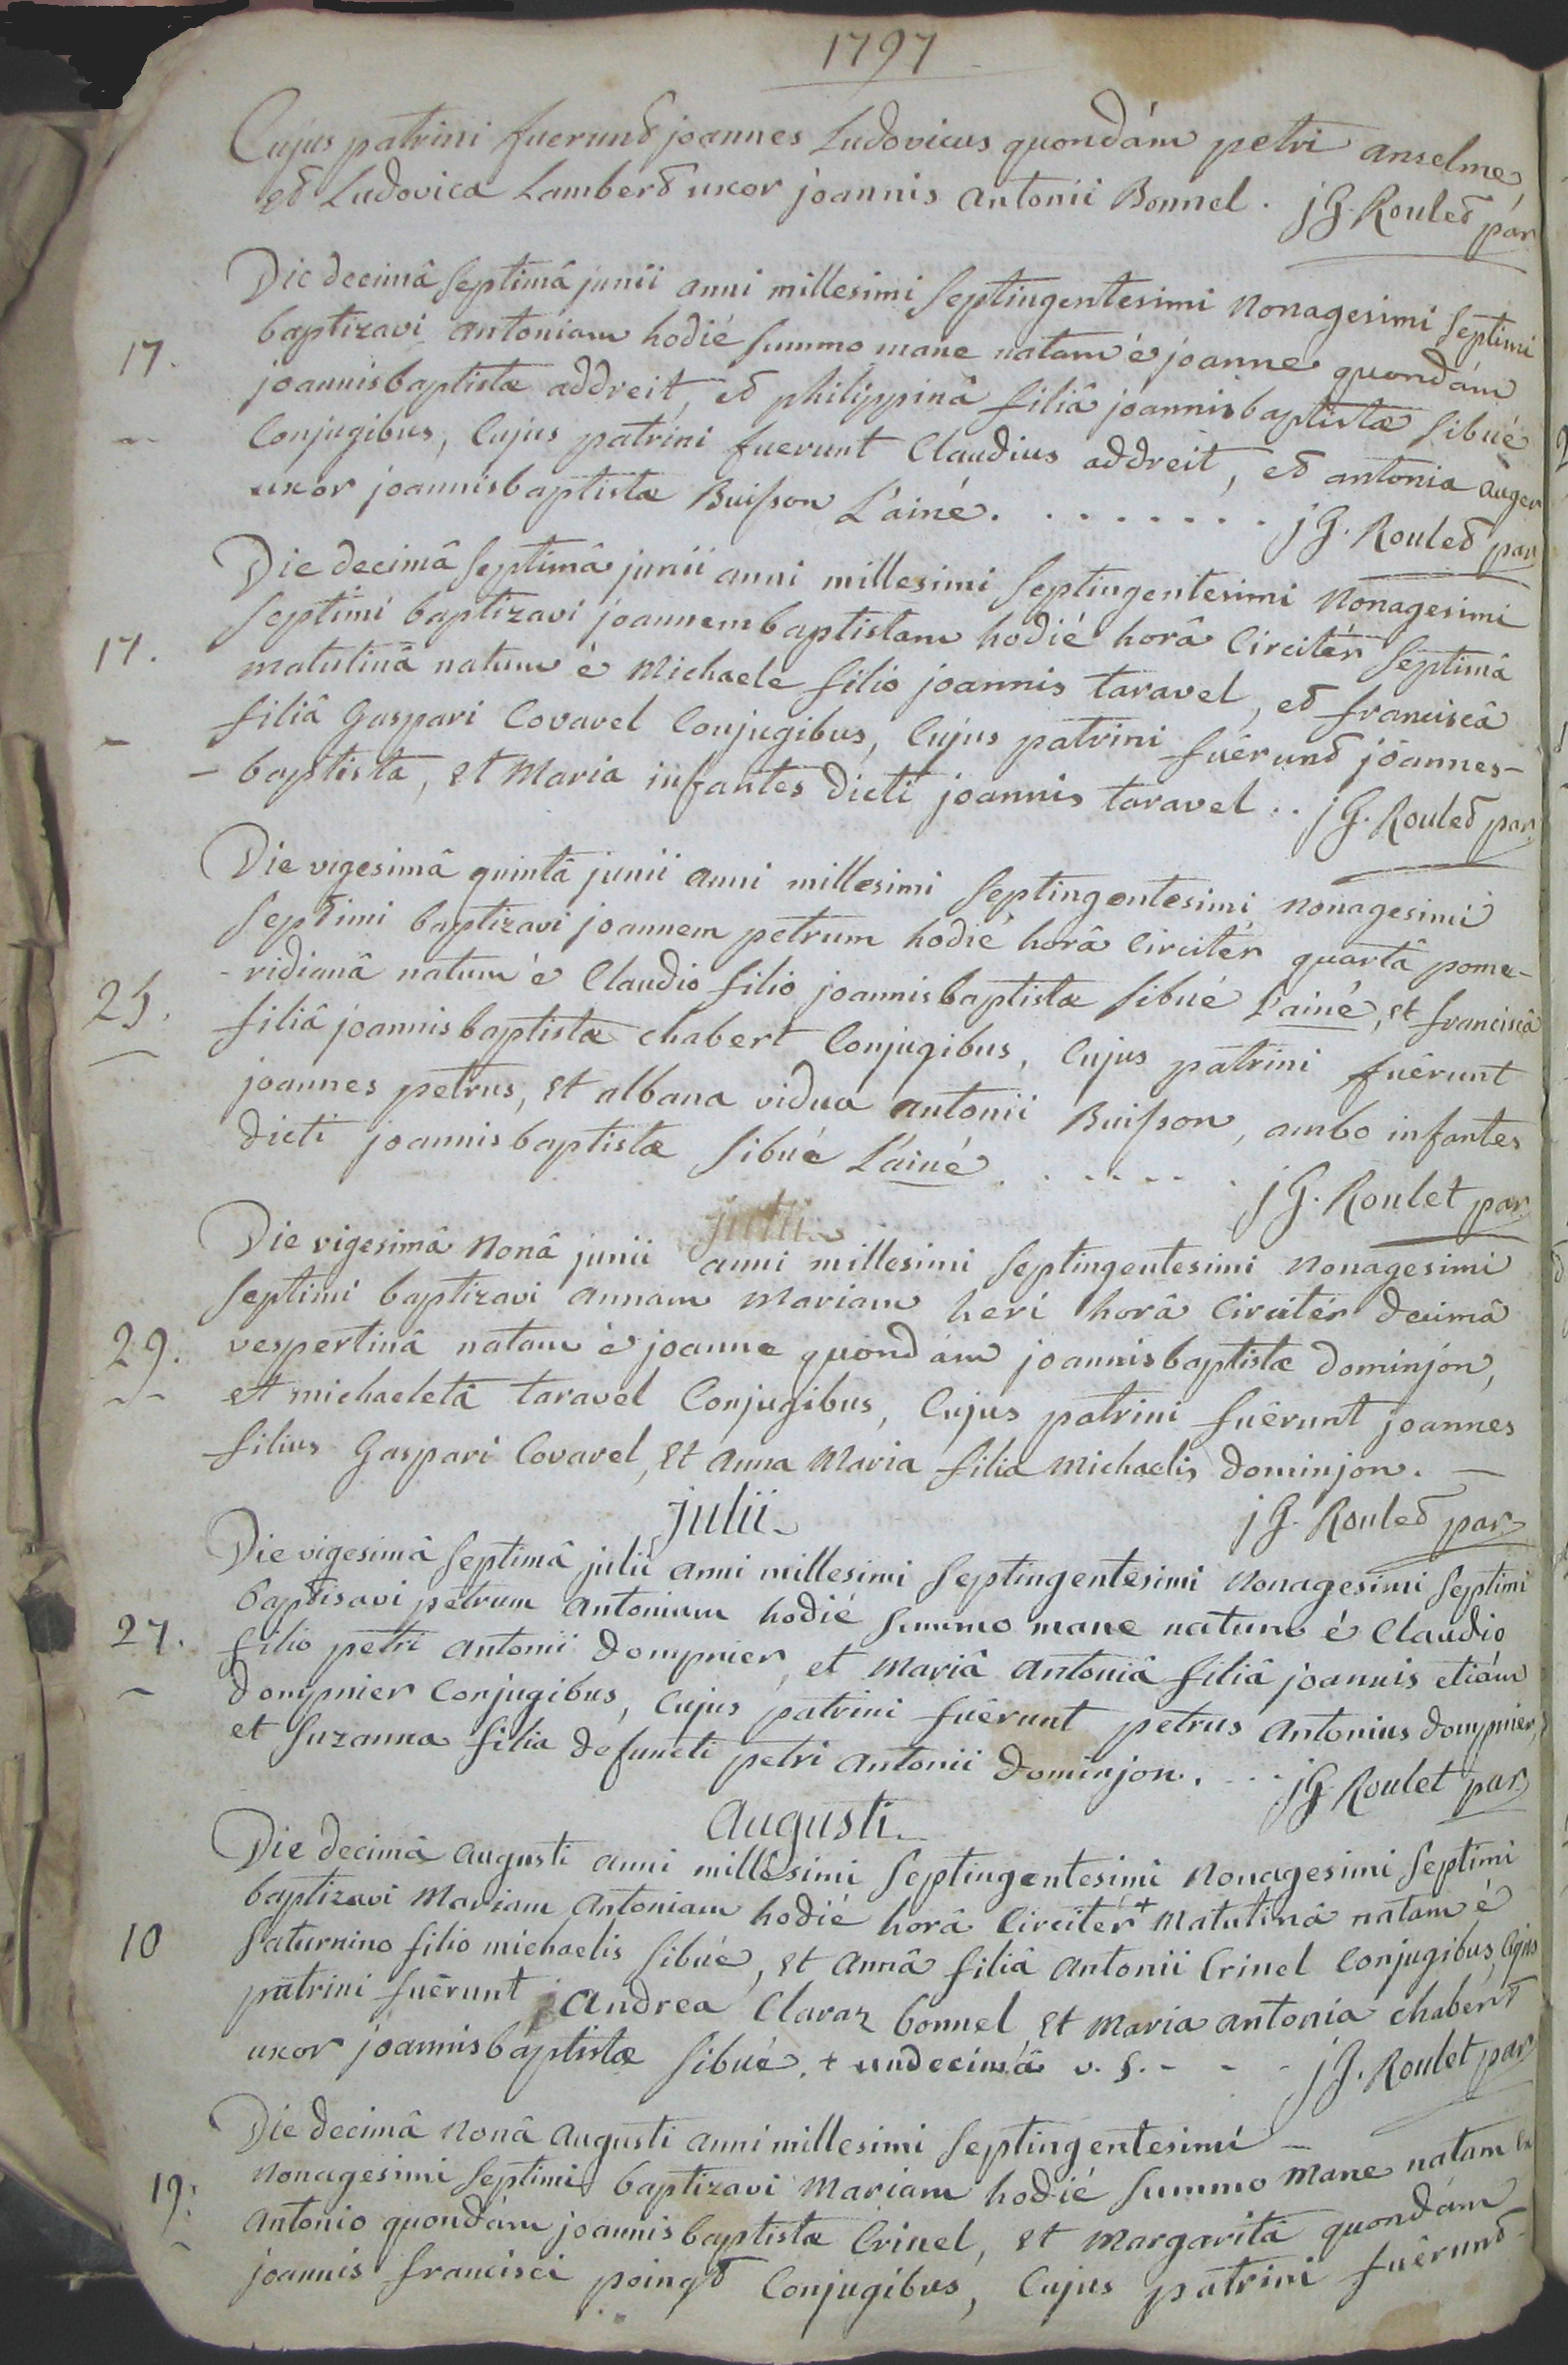 1797
Cujus patrini fuerunt joannes Ludovicus quondám petri anselme
et Ludovica Lambert uxor joannis antonii Bonnel. jG. Roulet par
Die decimâ septimâ junii anni millesimi septingentesimi nonagesimi septimi
17. baptizavi antoniam hodié summo mane natam é joanne quondám
joannisbaptistæ addreit, et philippinâ filiâ joannisbaptistæ sibué
Conjugibus, Cujus patrini fuerunt Claudius addreit, et antonia auger
uxor joannisbaptistæ Buisson L'ainé. . . . . . . . jG. Roulet par
Die decimâ septimâ junii anni millesimi septingentesimi nonagesimi
septimi baptizavi joannembaptistam hodié horâ Circitér septimâ
17. matutinâ natum é Michaele filio joannis taravel, et franciscâ
filiâ Gaspari Covarel Conjugibus, Cujus patrini fuêrunt joannes-
- baptista, et Maria infantes dicti joannis taravel . . jG. Roulet par
Die vigesimâ quintâ junii anni millesimi septingentesimi nonagesimi
septimi baptizavi joannem petrum hodié horâ Circitér quartâ pome-
-ridianâ natum é Claudio filio joannisbaptistæ sibué L'ainé, et franciscâ
25. filiâ joannisbaptistæ chabert Conjugibus, Cujus patrini fuêrunt
joannes petrus, et albana vidua antonii Buisson, ambo infantes
dicti joannisbaptistæ sibué L'ainé . . . . . . jG. Roulet par
julii
Die vigesimâ nonâ junii anni millesimi septingentesimi nonagesimi
septimi baptizavi annam mariam heri horâ Circitér decimâ
29. vespertinâ natam é joanne quondám joannisbaptistæ dominjon,
et michaeletâ taravel Conjugibus, Cujus patrini fuêrunt joannes
filius Gaspari Covarel, et anna Maria filia Michaelis dominjon. -
julii jG. Roulet par
Die vigesimâ septimâ julii anni millesimi septingentesimi nonagesimi septimi
baptisavi petrum antonium hodié summo mane natum é Claudio
27. filio petri antonii dompnier, et mariâ antoniâ filiâ joannis etiám
dompnier Conjugibus, Cujus patrini fuêrunt petrus antonius dompnier,
et suzanna filia defuncti petri antonii dominjon. . . . jG. Roulet par
Augusti
Die decimâ augusti anni millesimi septingentesimi nonagesimi septimi
baptizavi Mariam Antoniam hodié horâ Circitér + matutinâ natam é
10 saturnino filio michaelis sibué, et annâ filiâ antonii Crinel Conjugibus, Cujus
patrini fuêrunt andrea Claraz bonnel et maria antonia chabert
uxor joannisbaptistæ sibué. + undecimâ v. s. - - - jG. Roulet par
Die decimâ nonâ augusti anni millesimi septingentesimi -
nonagesimi septimi baptizavi Mariam hodié summo mane natam ex
19. antonio quondám joannisbaptistæ Crinel, et margaritâ quondám
joannis francisci poingt Conjugibus, Cujus patrini fuêrunt